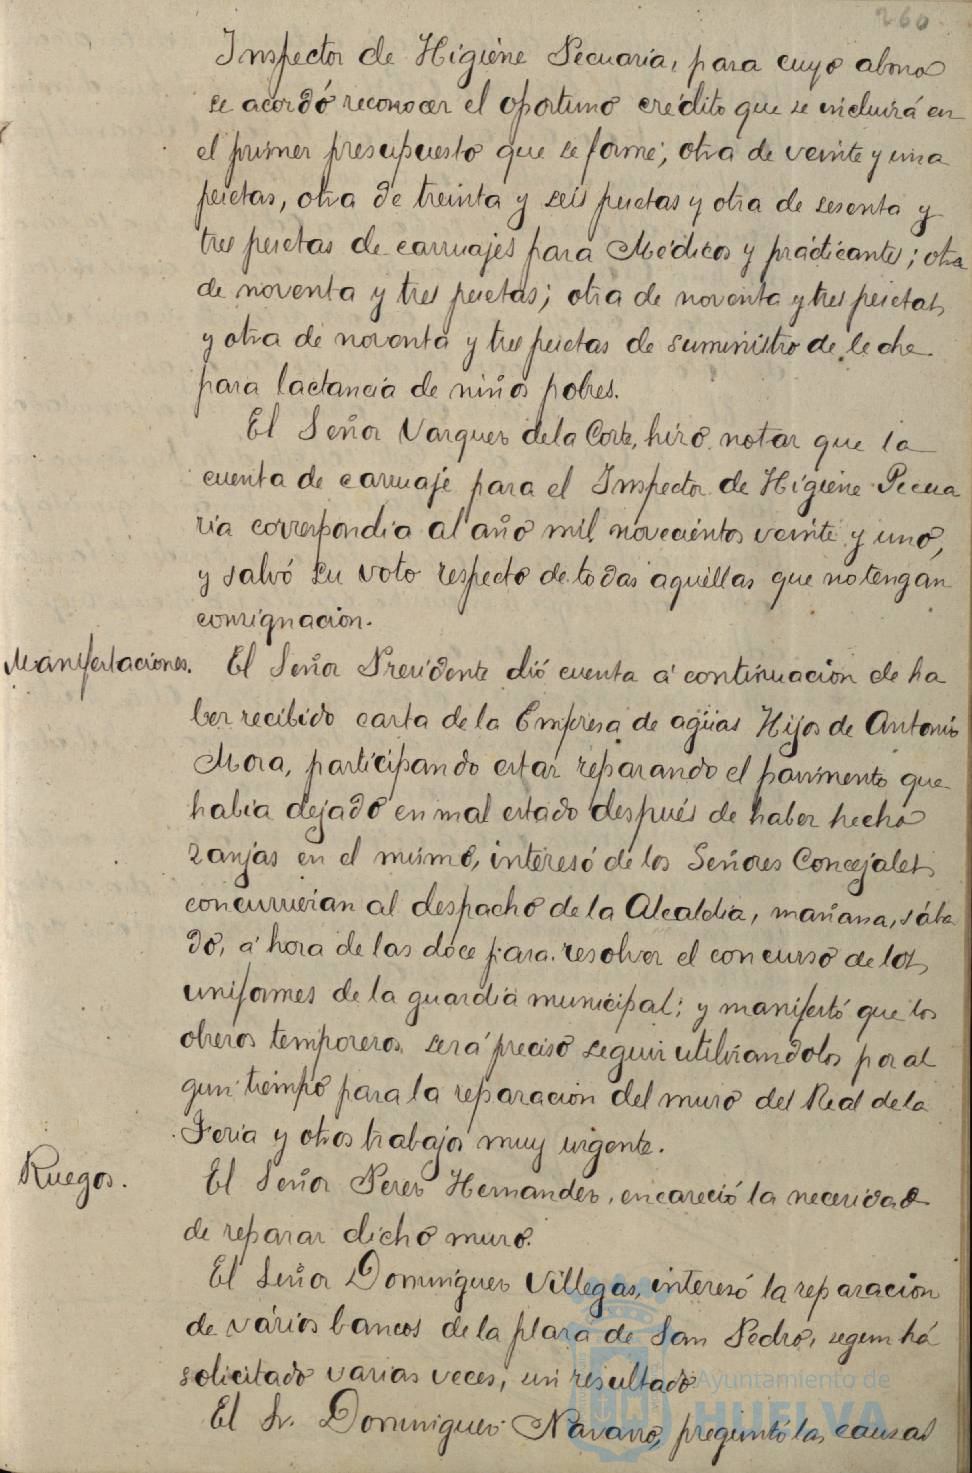 260
Inspector de Higiene Pecuaria, para cuyo abono
se acordó reconocer el oportuno crédito que se incluirá en
el primer presupuesto que se forme; otra de veinte y una
pesetas, otra de treinta y seis pesetas y otra de sesenta y
tres pesetas de carruajes para Médicos y practicantes; otra
de noventa y tres pesetas; otra de noventa y tres pesetas
y otra de noventa y tres pesetas de suministro de leche
para lactancia de niños pobres.
El Señor Vazquez de la Corte, hizo notar que la
cuenta de carruaje para el Inspector de Higiene Pecua
ria correspondia al año mil novecientos veinte y uno,
y salvó su voto respecto de todas aquellas que no tengan
consignacion.
Manifestaciones. El Señor Presidente dió cuenta á continuacion de ha
ber recibido carta de la Empresa de aguas Hijos de Antonio
Mora, participando estar reparando el pavimento que
habia dejado en mal estado después de haber hecho
zanjas en el mismo, interesó de los Señores Concejales
concurrieran al despacho de la Alcaldia, mañana, sába
do, á hora de las doce para resolver el concurso de los
uniformes de la guardia municipal; y manifestó que los
obreros temporeros será preciso seguir utilizandolos por al
gun tiempo para la reparacion del muro del Real de la
Feria y otros trabajos muy urgente.
Ruegos. El Señor Perez Hernandez, encareció la necesidad
de reparar dicho muro.
El Señor Dominguez Villegas, interesó la reparacion
de vários bancos de la plaza de San Pedro, segun há
solicitado varias veces, sin resultado
El Sr. Dominguez Navarro, preguntó las causas
Ayuntamiento de
HUELVA